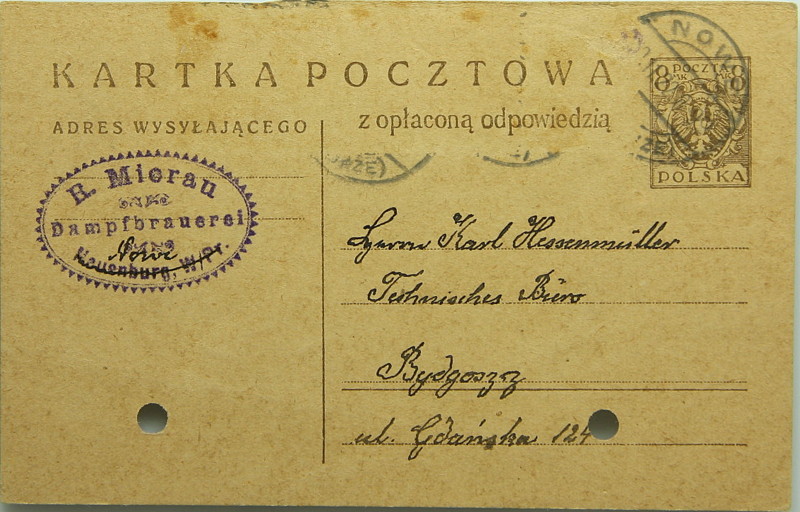 KARTKA POCZTOWA
z opłaconą odpowiedzią
ADRES WYSYŁAJĄCEGO
8 POCZTA 8
MK. MK.
POLSKA
NOW
RZE)
R. Mierau
Dampfbrauerei
Nowe
Neuenburg, W/Pr.
Herrn Karl Hessenmüller
Technisches Büro
Bydgoszcz
ul. Gdańska 124